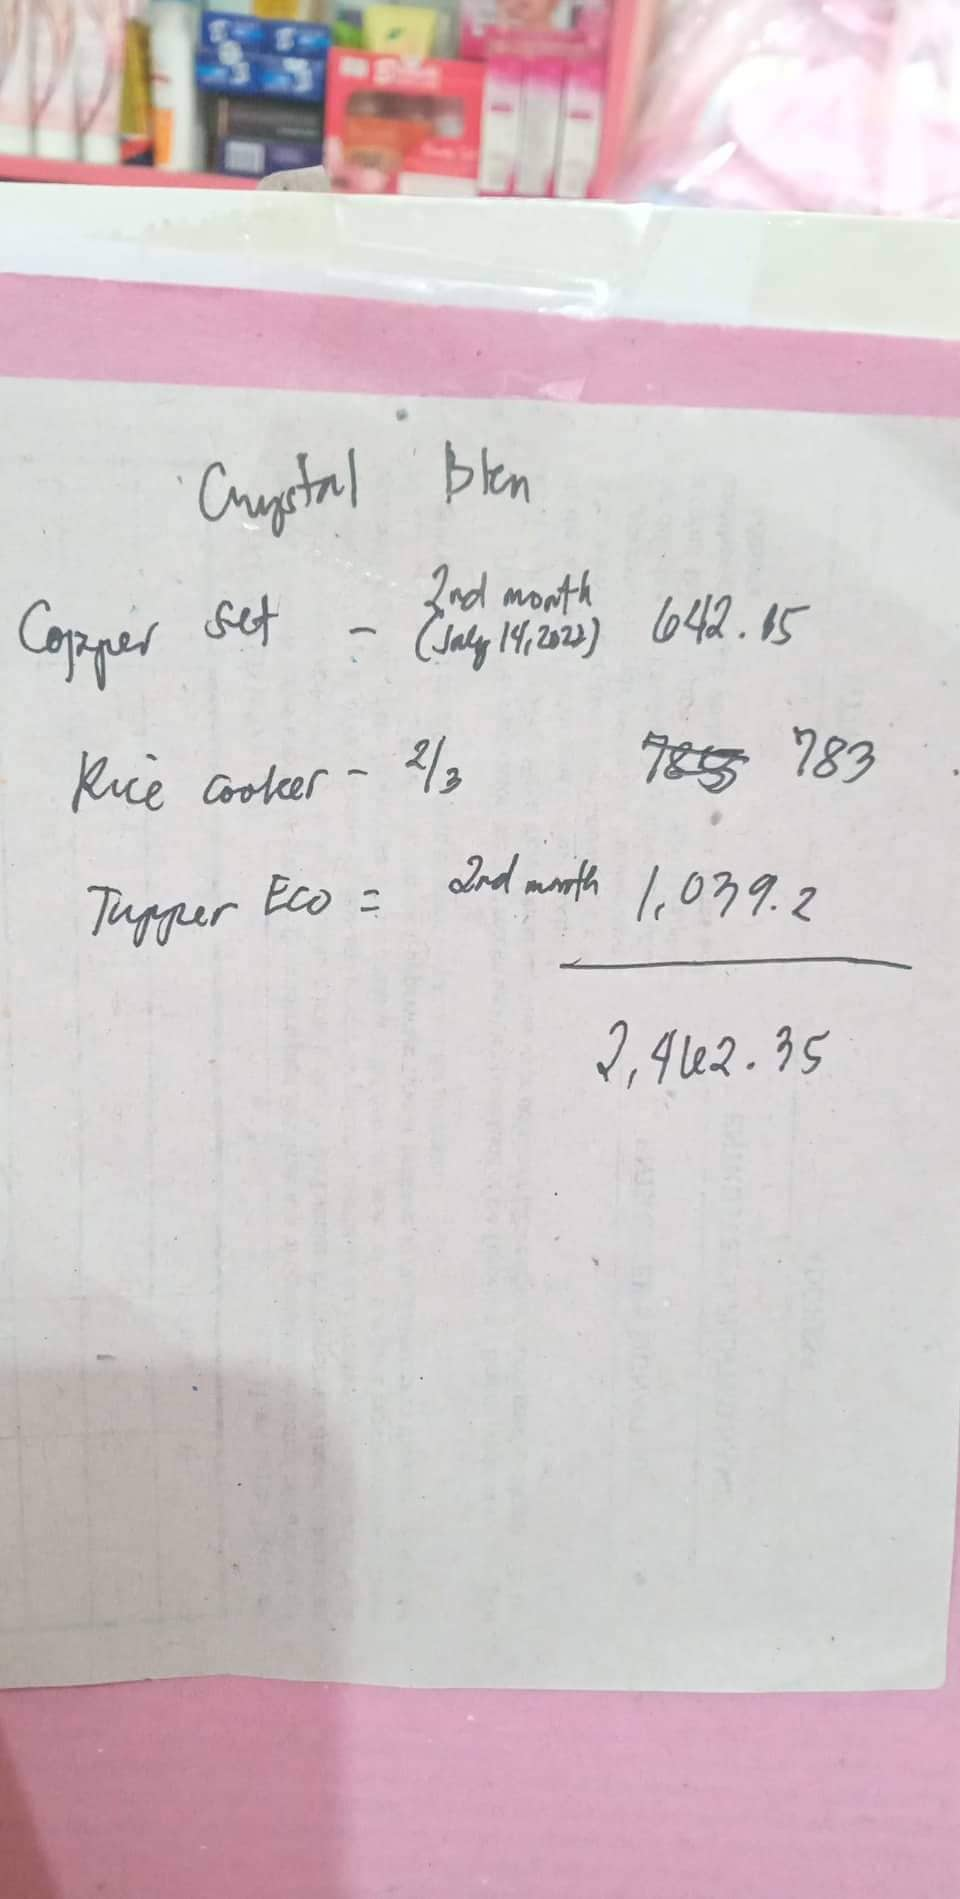 Crystal Blen
Copper set - 2nd month (July 14, 2022) 642.15
Rice cooker - 2/3 783
Tupper Eco = 2nd month 1,039.2
2,462.35